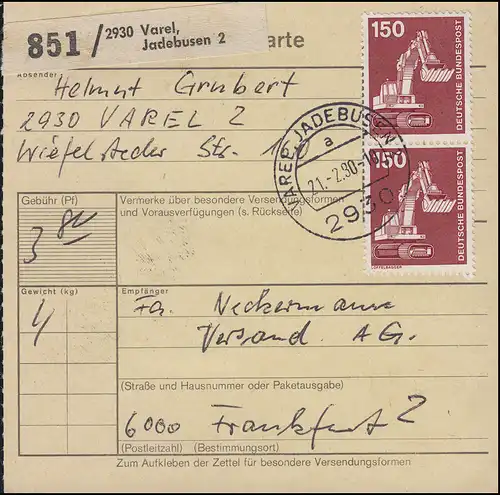 851 / 2930 Varel,
Jadebusen 2
arte
Absender
Helmut Grubert
2930 VAREL 2
Wiefelsteder Str. 1
150
DEUTSCHE BUNDESPOST
150
DEUTSCHE BUNDESPOST
LÖFFELBAGGER
VAREL, JADEBUSEN
a
21.-2.80-1
2930
Gebühr (Pf)
3 80
Vermerke über besondere Versendungsformen
und Vorausverfügungen (s. Rückseite)
Gewicht (kg)
4
Empfänger
Fa. Neckermann
Versand AG.
(Straße und Hausnummer oder Paketausgabe)
6000 Frankfurt 2
(Postleitzahl) (Bestimmungsort)
Zum Aufkleben der Zettel für besondere Versendungsformen